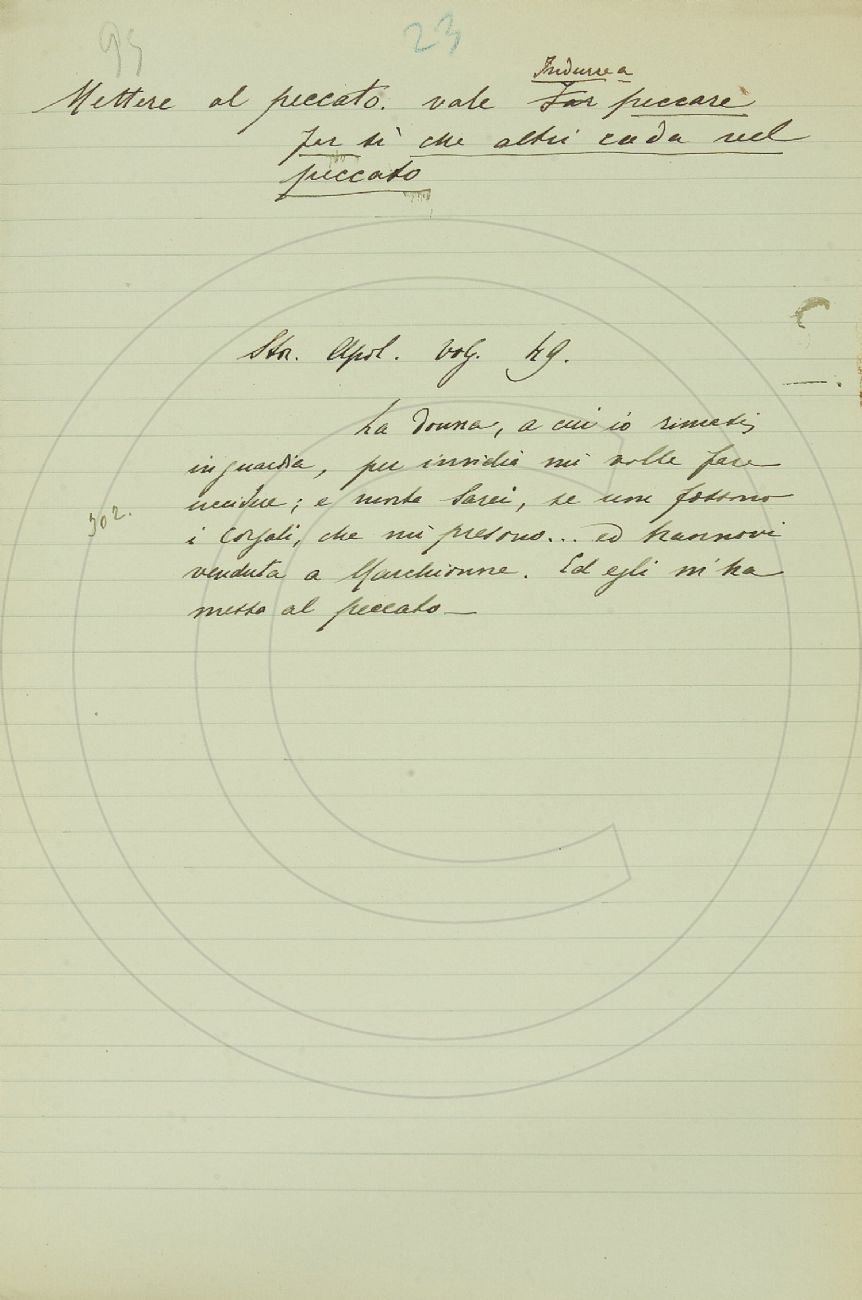 95 23
Indurre a
Mettere al peccato. vale Far peccare
far sì che altri cada nel
peccato
Stor. Apol. volg. 49.
La donna, a cui io rimasi
in guardia, per invidia mi volle fare
uccidere; e morta sarei, se non fossono
i Corsali, che mi presono... ed hannovi
venduta a Marchionne. Ed egli m'ha
messo al peccato —
302.